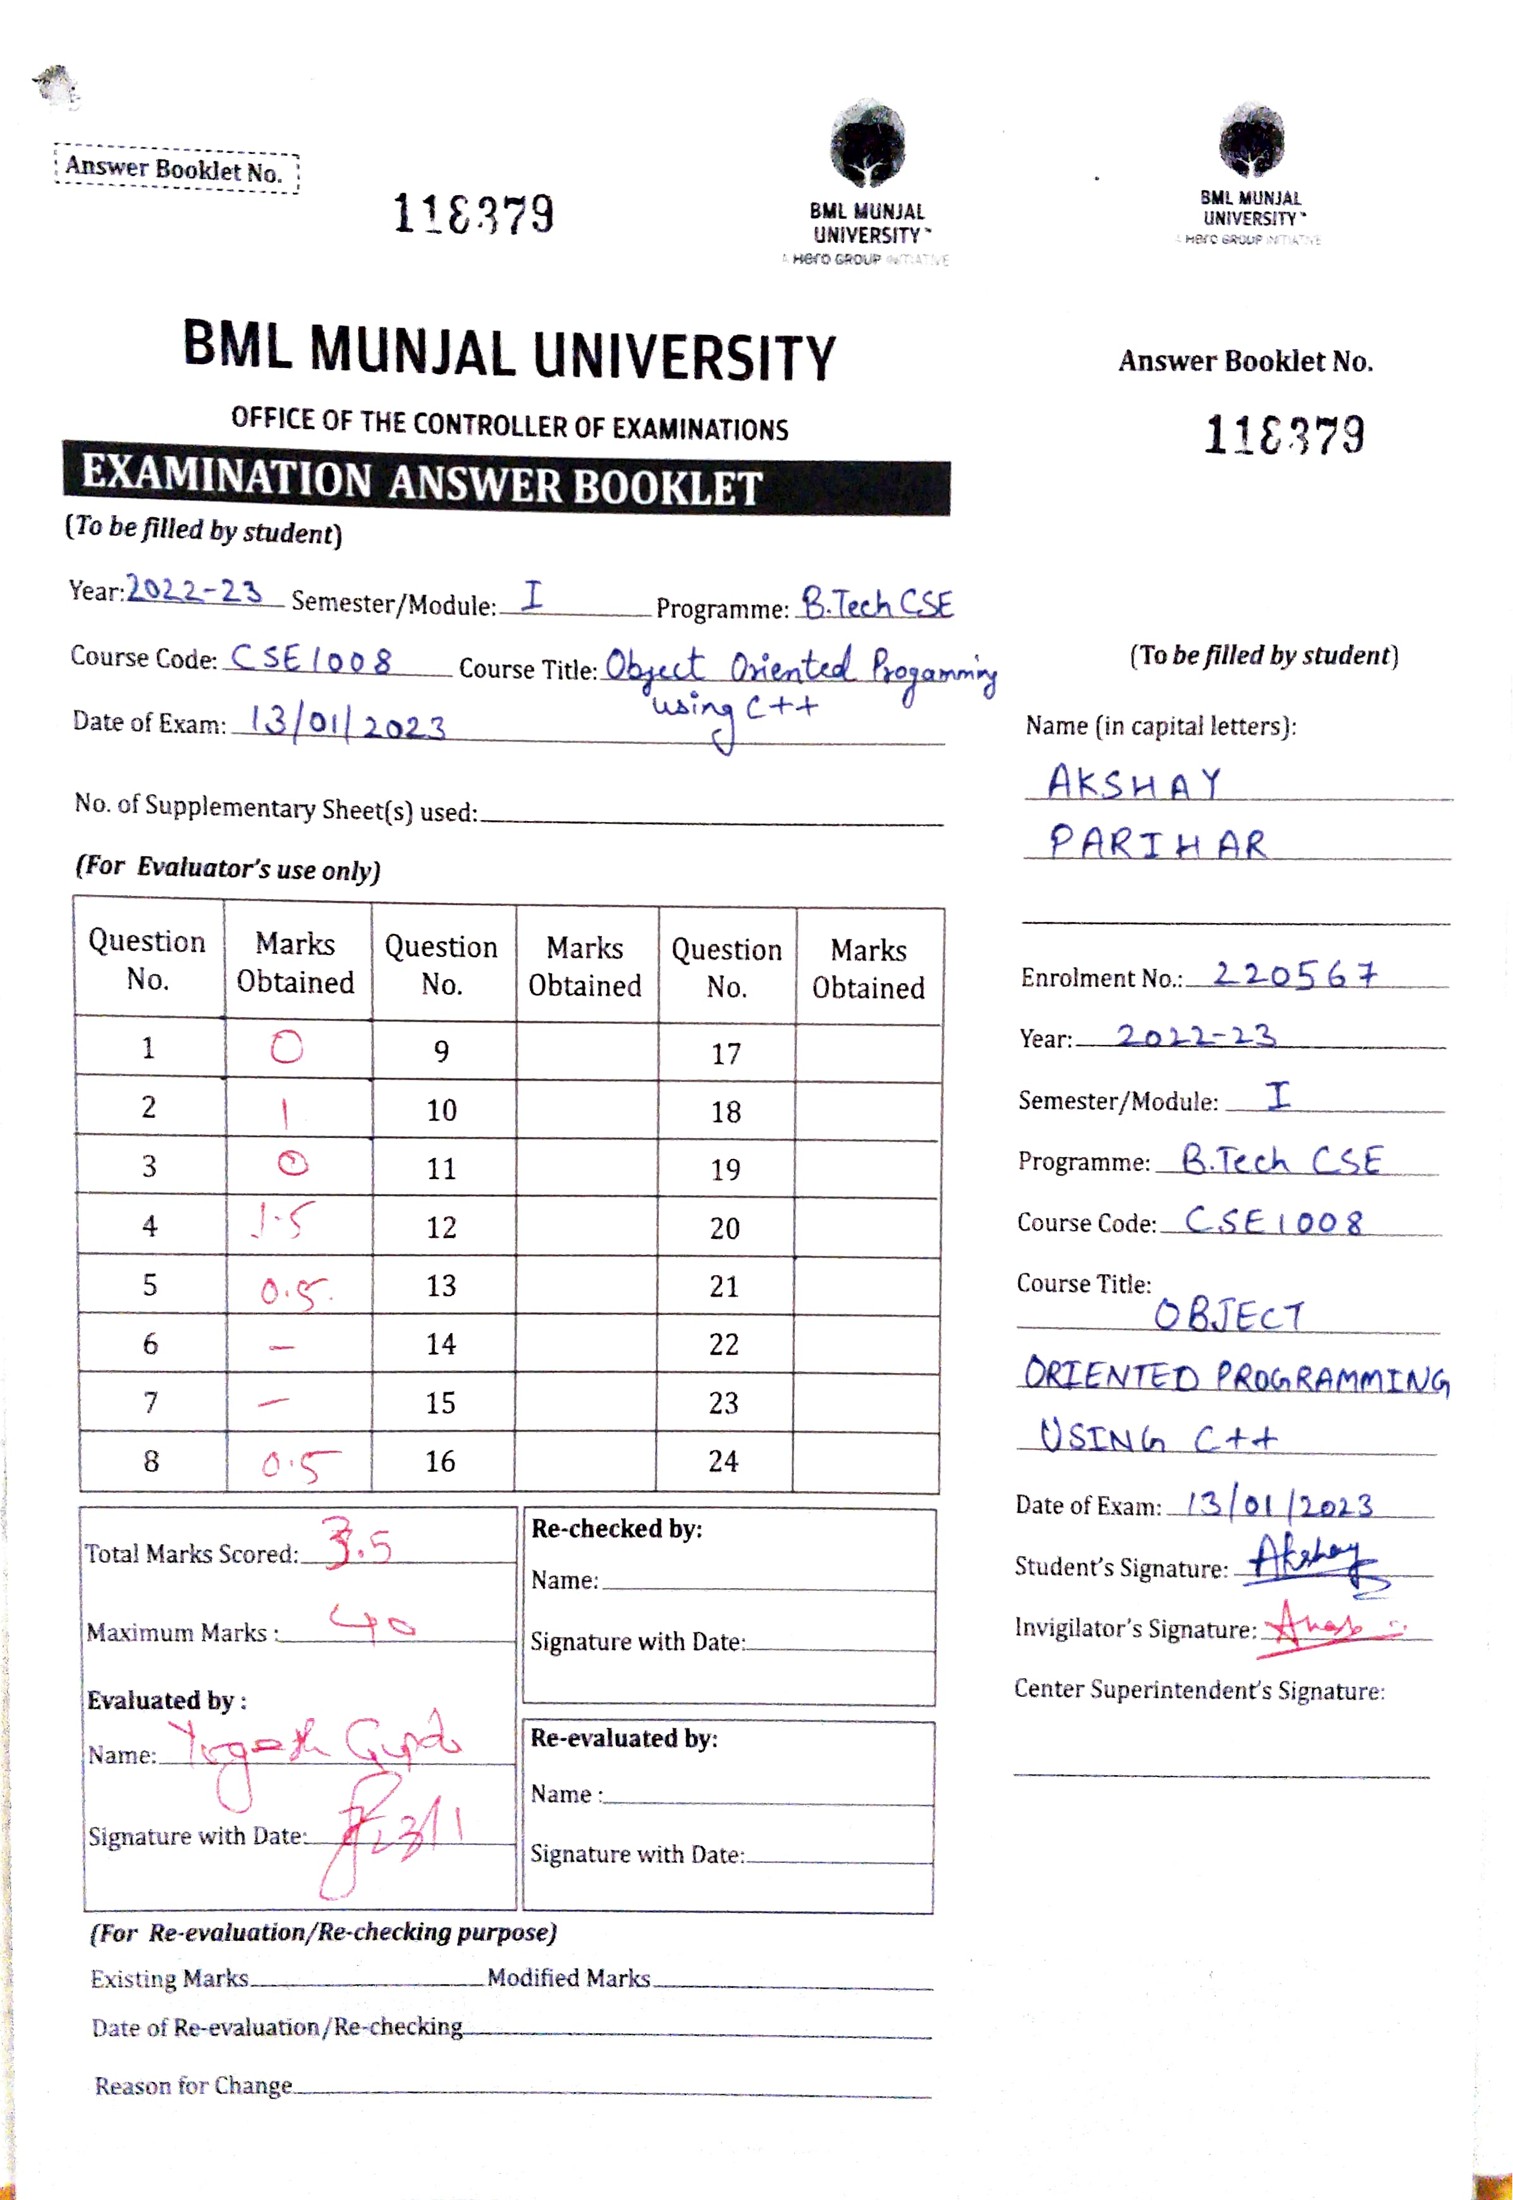 Answer Booklet No.
118379
BML MUNJAL
UNIVERSITY™
A Hero GROUP INITIATIVE
BML MUNJAL UNIVERSITY
OFFICE OF THE CONTROLLER OF EXAMINATIONS
EXAMINATION ANSWER BOOKLET
(To be filled by student)
Year: 2022-23 Semester/Module: I Programme: B.Tech CSE
Course Code: CSE1008 Course Title: Object Oriented Progamming
using C++
Date of Exam: 13/01/2023
No. of Supplementary Sheet(s) used:
(For Evaluator's use only)
Question No. Marks Obtained Question No. Marks Obtained Question No. Marks Obtained
1 0 9 17
2 1 10 18
3 0 11 19
4 1.5 12 20
5 0.5 13 21
6 — 14 22
7 — 15 23
8 0.5 16 24
Total Marks Scored: 3.5
Maximum Marks : 40
Evaluated by :
Name: Yogesh Gupta
Signature with Date: 23/1
Re-checked by:
Name:
Signature with Date:
Re-evaluated by:
Name :
Signature with Date:
(For Re-evaluation/Re-checking purpose)
Existing Marks Modified Marks
Date of Re-evaluation/Re-checking
Reason for Change
BML MUNJAL
UNIVERSITY™
A Hero GROUP INITIATIVE
Answer Booklet No.
118379
(To be filled by student)
Name (in capital letters):
AKSHAY
PARIHAR
Enrolment No.: 220567
Year: 2022-23
Semester/Module: I
Programme: B.Tech CSE
Course Code: CSE1008
Course Title:
OBJECT
ORIENTED PROGRAMMING
USING C++
Date of Exam: 13/01/2023
Student's Signature: Akshay
Invigilator's Signature:
Center Superintendent's Signature: